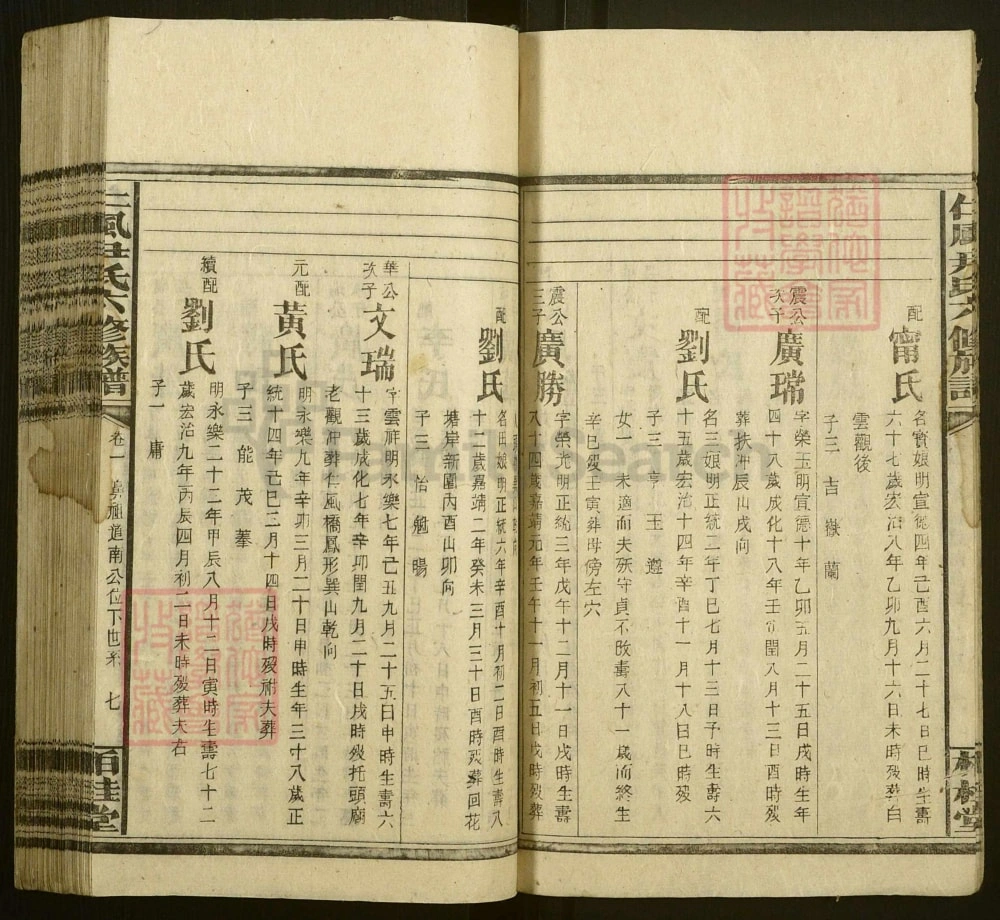 配
甯氏
名寳娘明宣德四年己酉六月二十七日巳時生壽
六十七歲宏治八年乙卯九月十六日未時殁葬白
雲觀後
子三 吉 嶽 蘭
震公次子
廣瑺
字榮玉明宣德十年乙卯五月二十五日戌時生年
四十八歲成化十八年壬寅閏八月十三日酉時殁
葬扶冲辰山戌向
配
劉氏
名三娘明正統二年丁巳七月十三日子時生壽六
十五歲宏治十四年辛酉十一月十八日巳時殁
子三 亨 玉 遵
女一 未適而夫殀守貞不改壽八十一歲而終生
辛巳殁壬寅葬母傍左穴
震公三子
廣勝
字榮光明正統三年戊午十二月十一日戌時生壽
八十四歲嘉靖元年壬午十一月初五日戌時殁葬
配
劉氏
名田娘明正統六年辛酉十月初二日酉時生壽八
十二歲嘉靖二年癸未三月三十日酉時殁葬回花
塘岸新園內酉山卯向
子三 怡 魁 暘
華公次子
文瑞
字雲祥明永樂七年己丑九月二十五日申時生壽六
十三歲成化七年辛卯閏九月二十日戌時殁托頭廟
老觀冲葬仁風橋鳳形巽山乾向
元配
黃氏
明永樂九年辛卯三月二十日申時生年三十八歲正
統十四年己巳三月十四日戌時殁祔夫葬
子三 能 茂 摹
續配
劉氏
明永樂二十二年甲辰八月十二日寅時生壽七十二
歲宏治九年丙辰四月初二日未時殁葬夫右
子一 庸
風 氏六修族譜
卷一
鼻祖道南公位下世系 七
百桂堂